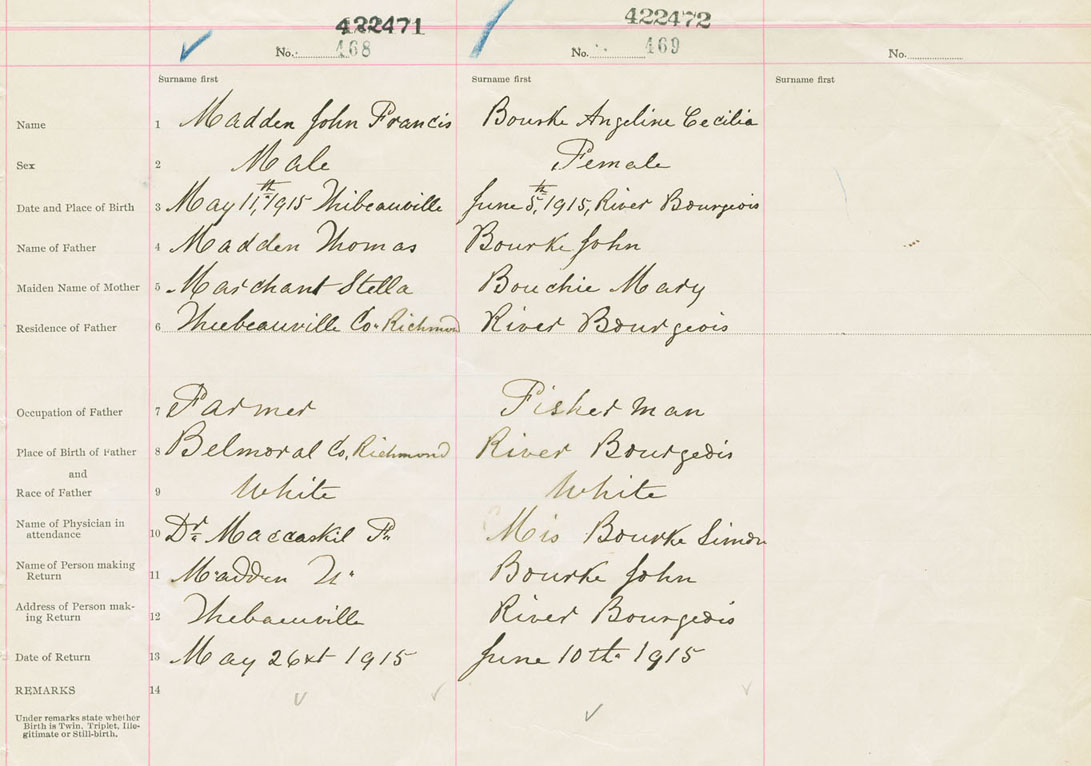 422471 422472
No. 468 No. 469 No.
Surname first Surname first Surname first
Name 1 Madden John Francis Bourke Angeline Cecilia
Sex 2 Male Female
Date and Place of Birth 3 May 11th, 1915 Thibeauville June 5th, 1915, River Bourgeois
Name of Father 4 Madden Thomas Bourke John
Maiden Name of Mother 5 Marchant Stella Bouchie Mary
Residence of Father 6 Thiebeauville Co. Richmond River Bourgeois
Occupation of Father 7 Farmer Fisherman
Place of Birth of Father 8 Belmoral Co. Richmond River Bourgeois
and
Race of Father 9 White White
Name of Physician in
attendance 10 Dr. Maccaskil F. Bourke Simon
Name of Person making
Return 11 Madden Bourke John
Address of Person mak-
ing Return 12 Thebauville River Bourgeois
Date of Return 13 May 26 1915 June 10th 1915
REMARKS 14
Under remarks state whether
Birth is Twin, Triplet, Ille-
gitimate or Still-birth.